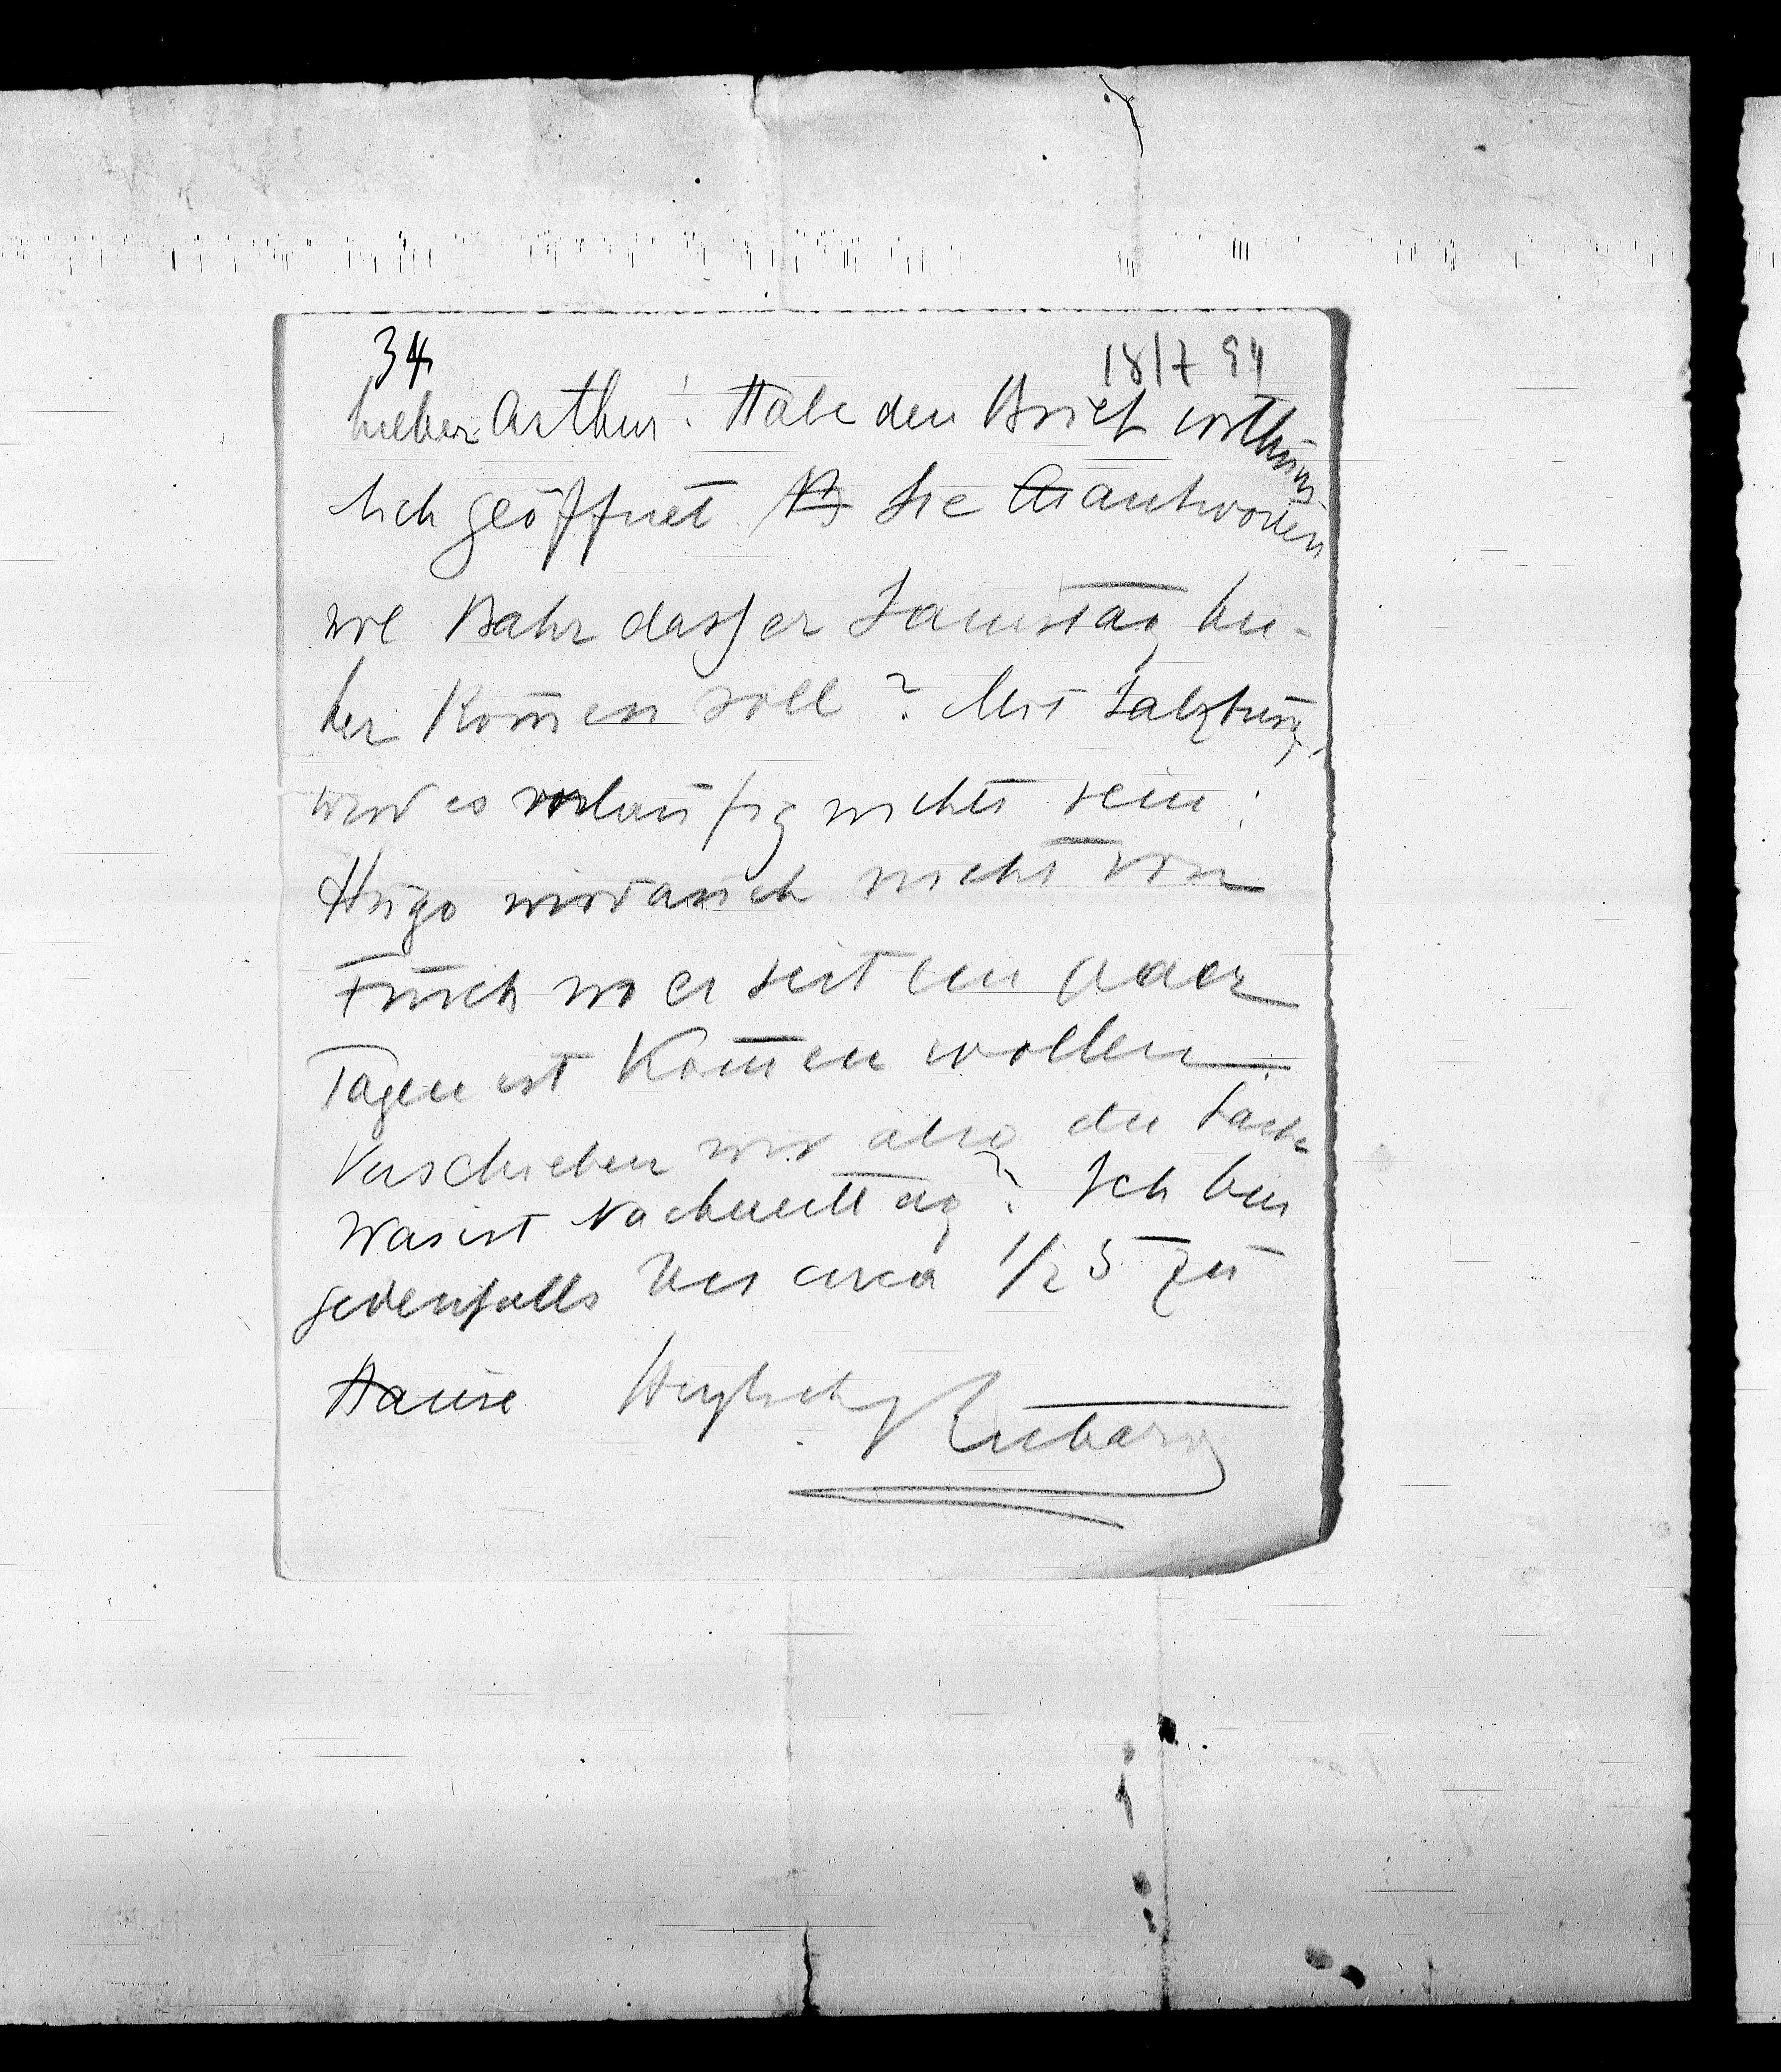 34
18/7 94
Lieber Arthur! Habe den Brief irrthüm
lich geöffnet B Sie A antworten
wol Bahr dass er Samstag hie-
her kom̄en soll? Mit Salzburg
wird es vorläufig nichts sein;
Hugo wird auch nicht von
Fusch wo er seit ein paar
Tagen ist kom̄en wollen.
Verschieben wir also die Sache
Was ist Nachmittag? Ich bin
jedenfalls bis circa 1/2 5 zu
Hause Herzlichst Richard